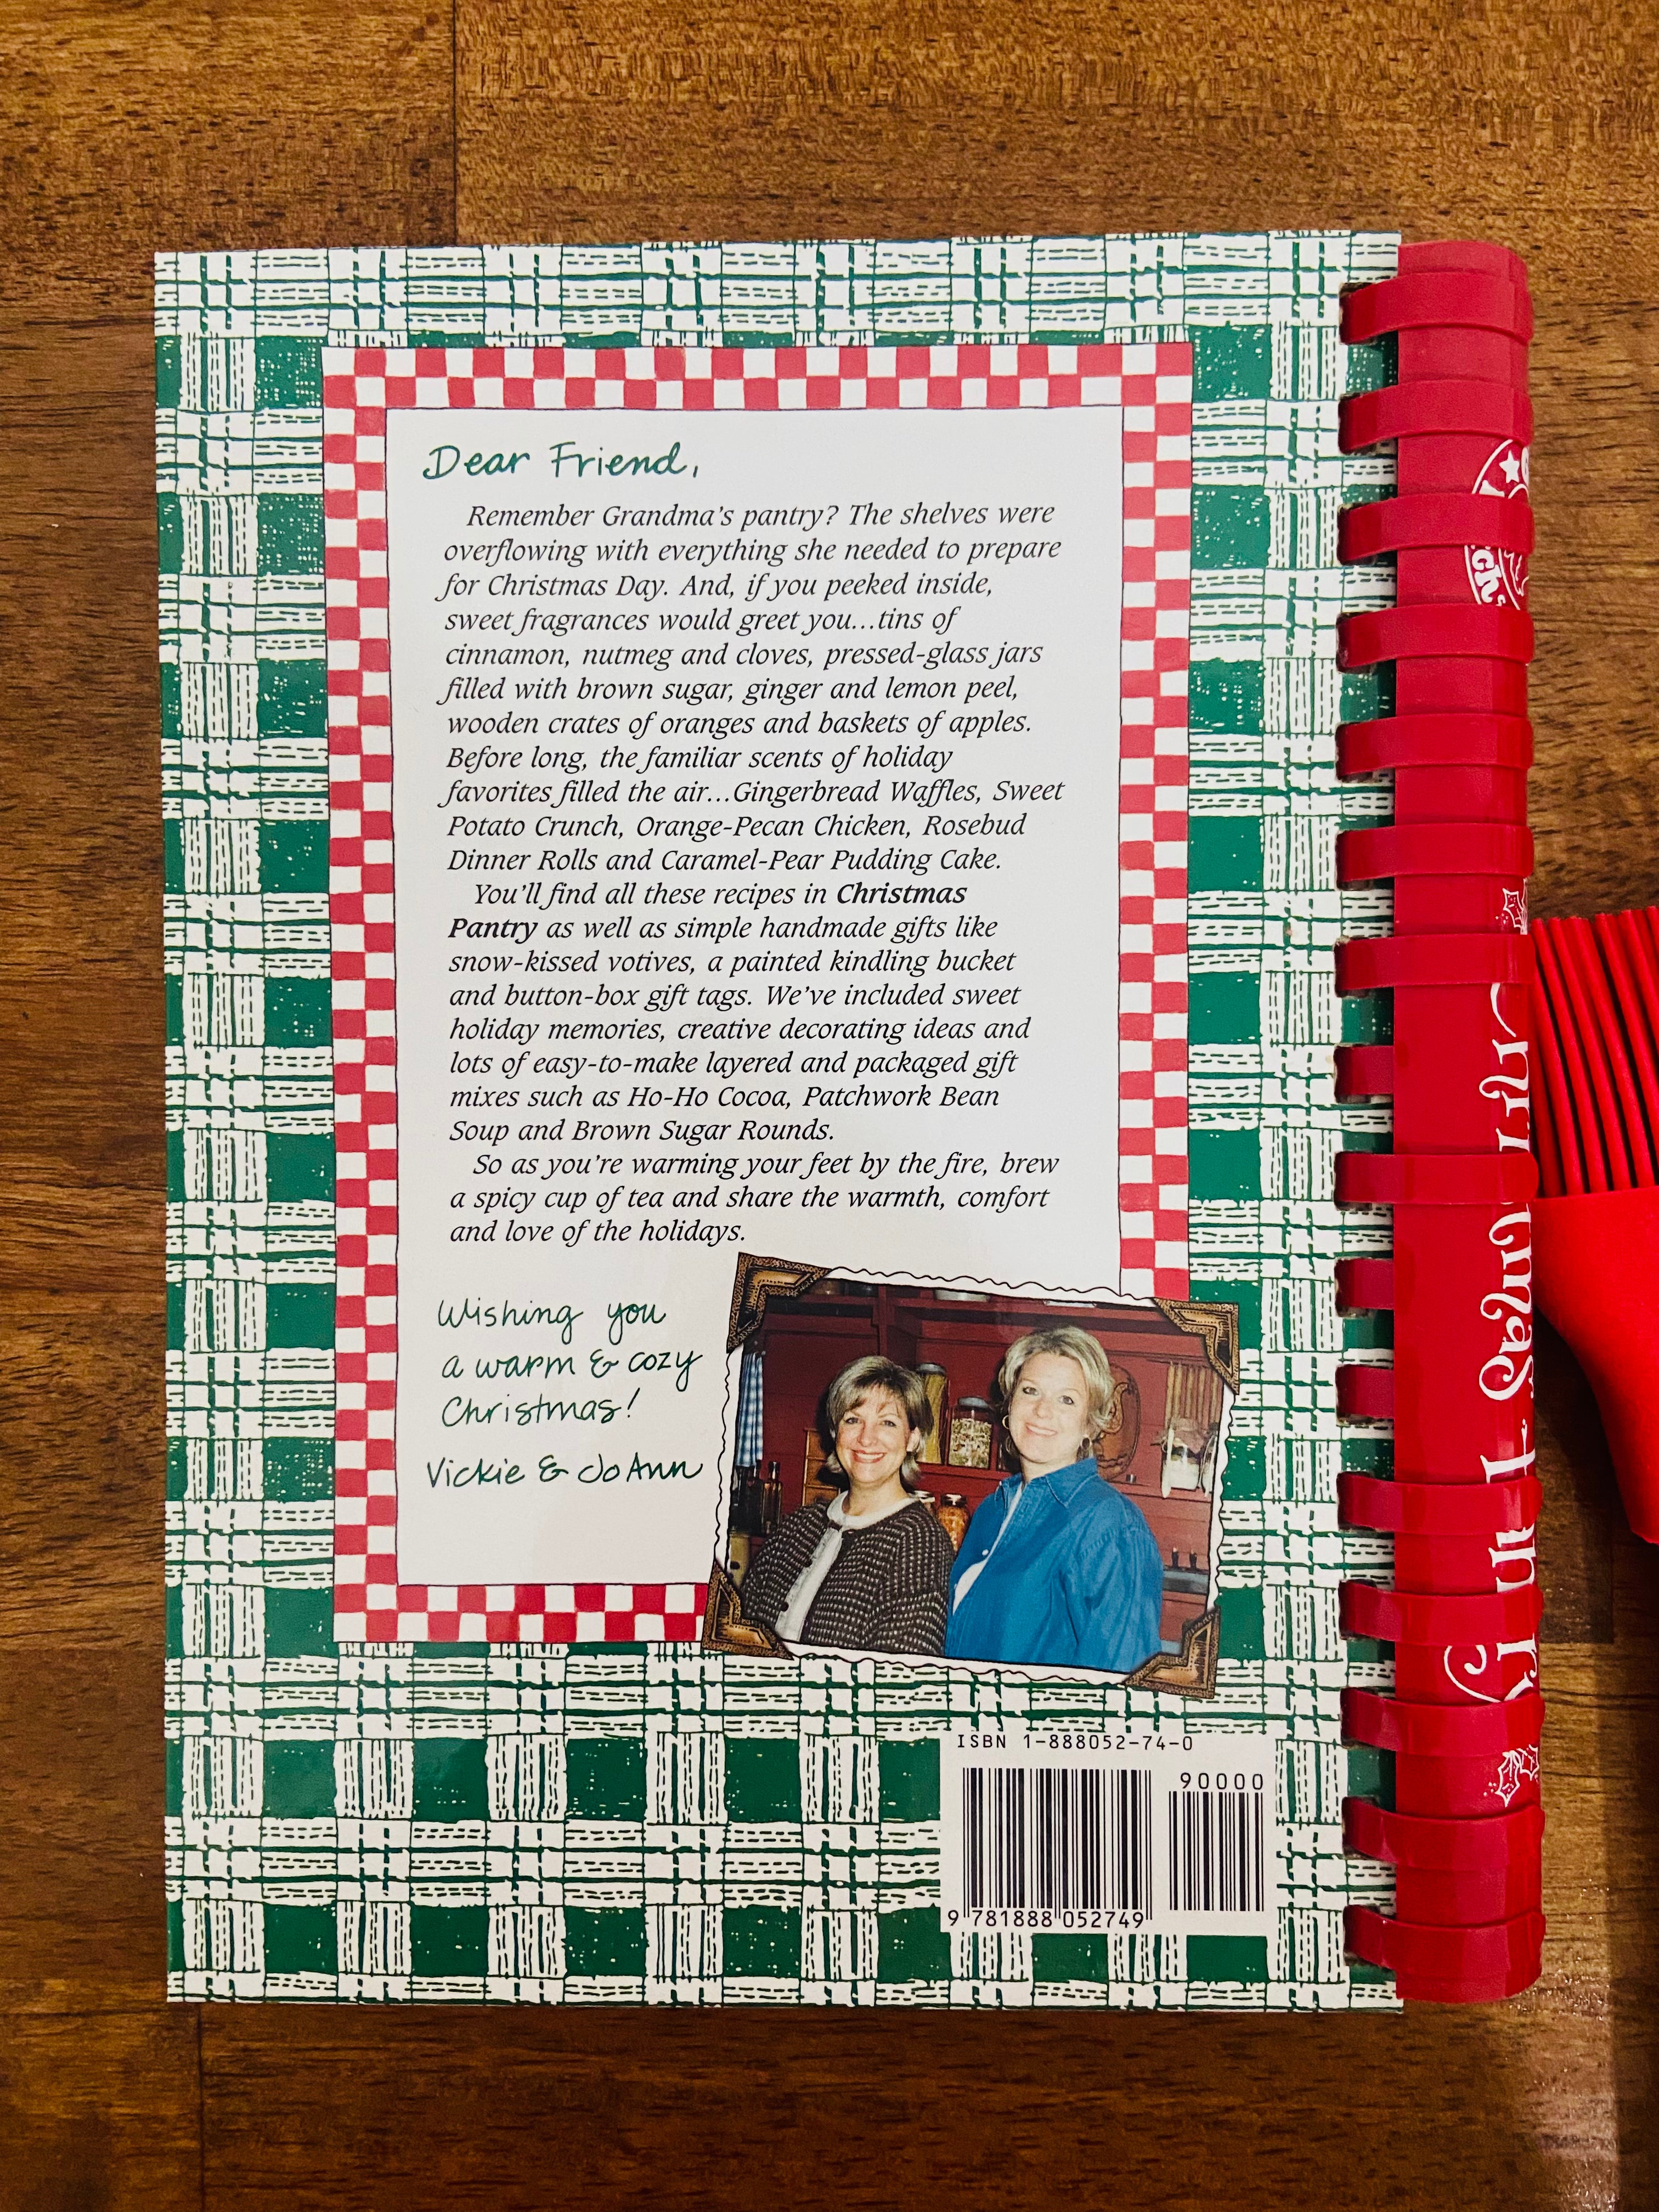 Dear Friend,
Remember Grandma's pantry? The shelves were
overflowing with everything she needed to prepare
for Christmas Day. And, if you peeked inside,
sweet fragrances would greet you...tins of
cinnamon, nutmeg and cloves, pressed-glass jars
filled with brown sugar, ginger and lemon peel,
wooden crates of oranges and baskets of apples.
Before long, the familiar scents of holiday
favorites filled the air...Gingerbread Waffles, Sweet
Potato Crunch, Orange-Pecan Chicken, Rosebud
Dinner Rolls and Caramel-Pear Pudding Cake.
You'll find all these recipes in Christmas
Pantry as well as simple handmade gifts like
snow-kissed votives, a painted kindling bucket
and button-box gift tags. We've included sweet
holiday memories, creative decorating ideas and
lots of easy-to-make layered and packaged gift
mixes such as Ho-Ho Cocoa, Patchwork Bean
Soup and Brown Sugar Rounds.
So as you're warming your feet by the fire, brew
a spicy cup of tea and share the warmth, comfort
and love of the holidays.
Wishing you
a warm & cozy
Christmas!
Vickie & JoAnn
ISBN 1-888052-74-0
90000
9 781888 052749